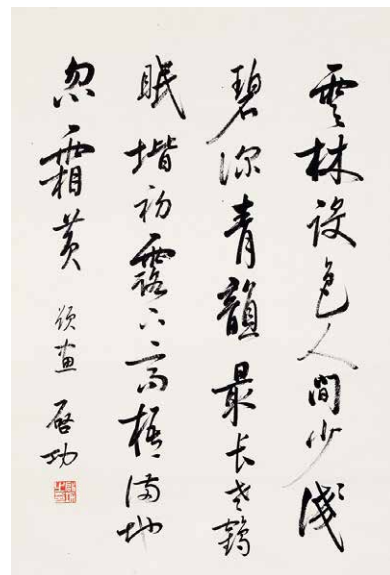 雲林設色人間少淺
碧深青韻最長老鶴
眠堦初露下高梧滿地
忽霜黃 題畫 啓功